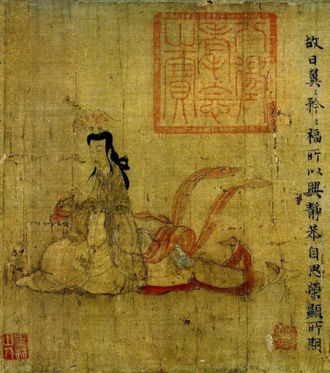 故曰翼〻矜〻福所以興靜恭自思榮顯所期
八徵
耄念
之寶